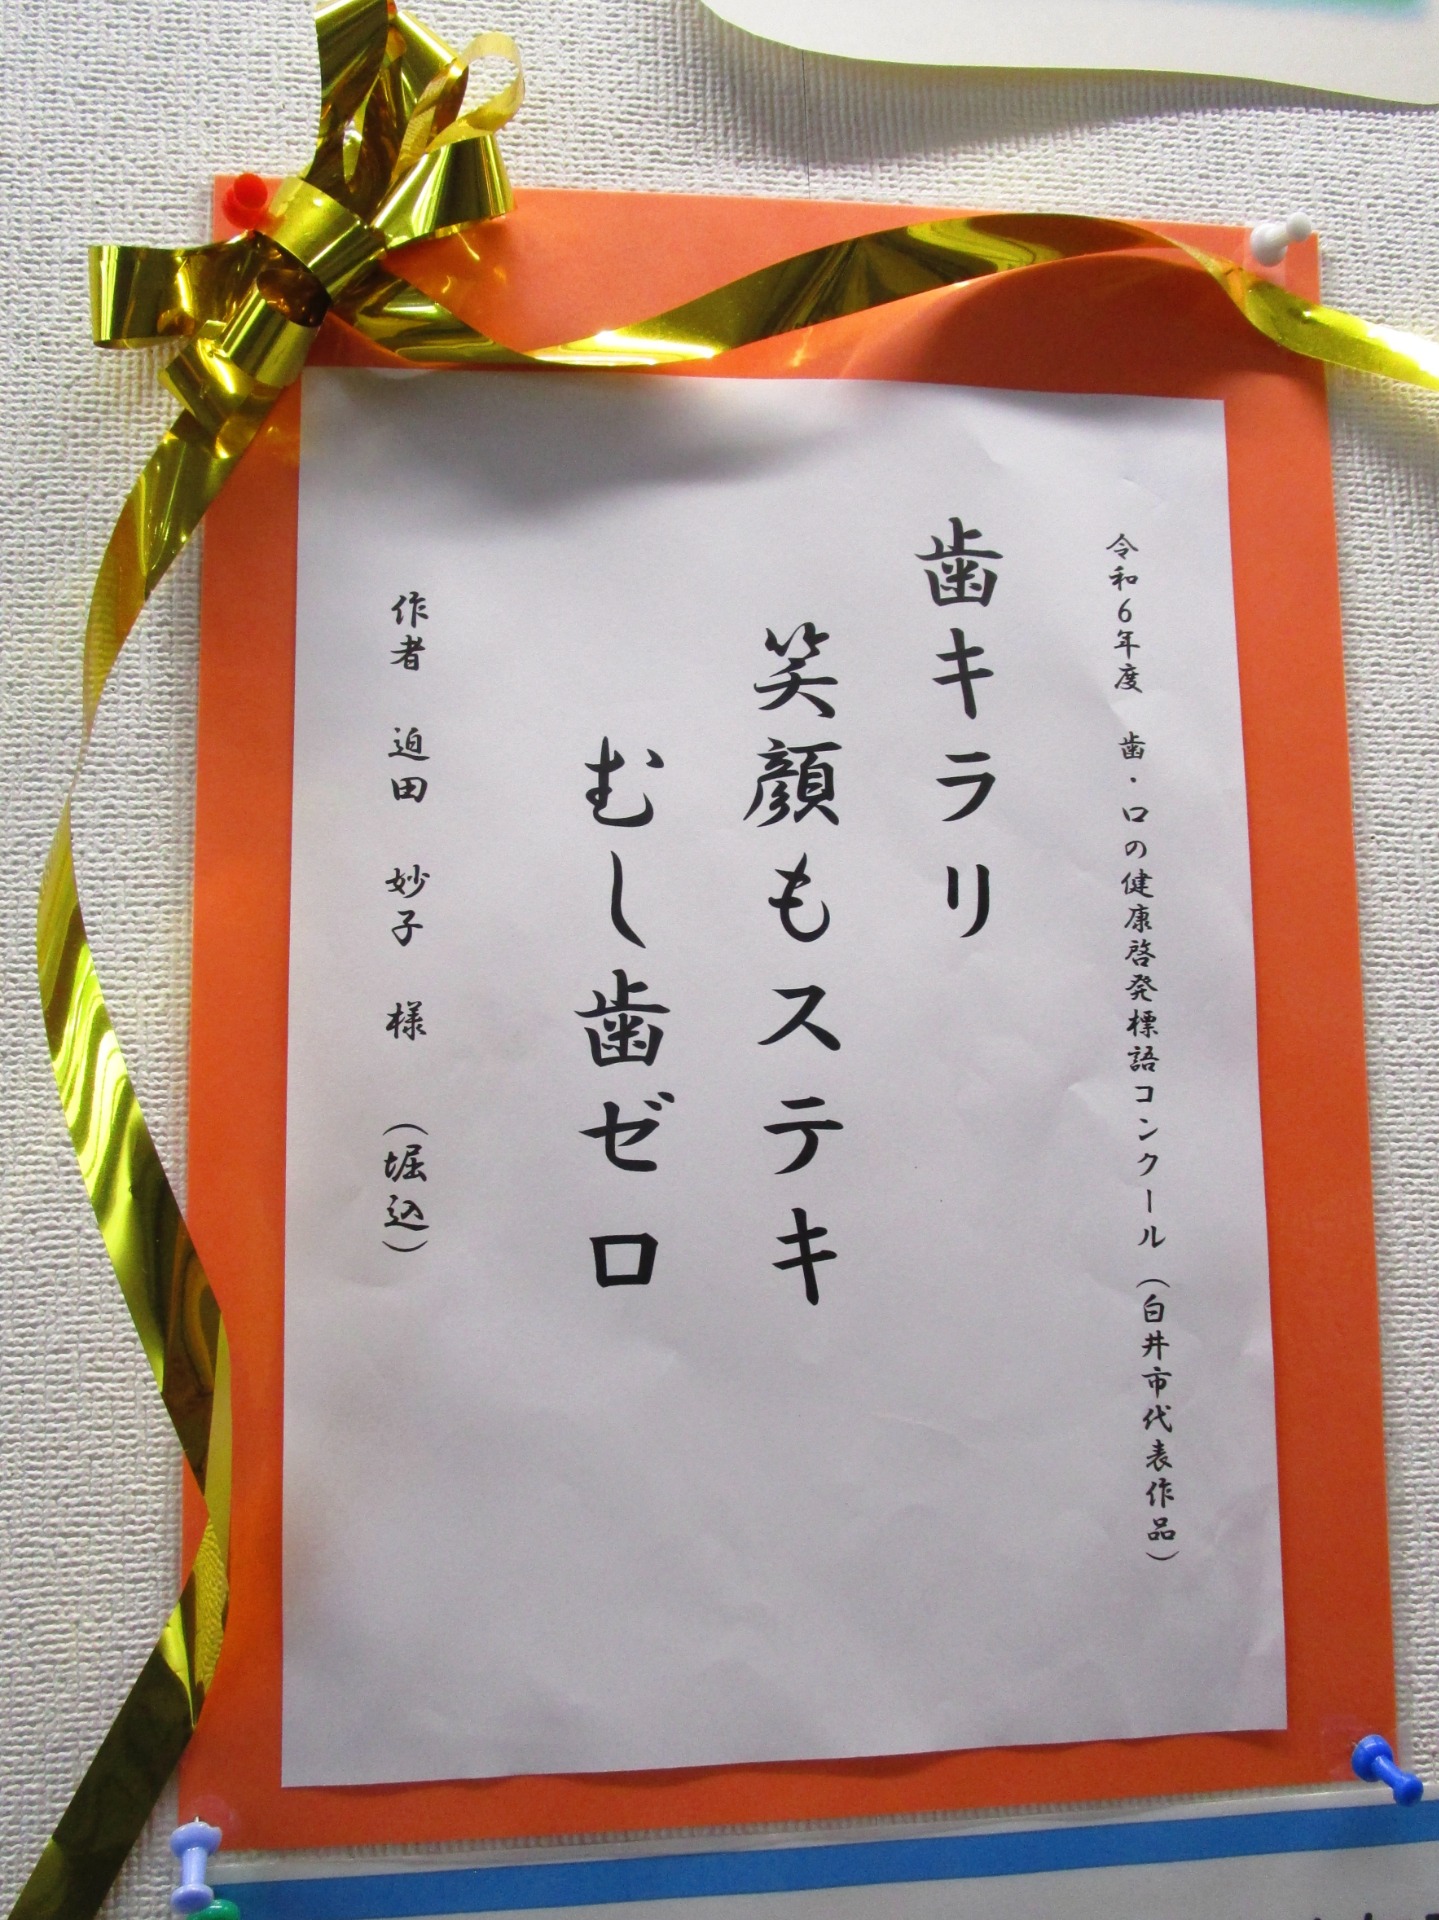 令和6年度　歯・口の健康啓発標語コンクール（白井市代表作品）
歯キラリ
笑顔もステキ
むし歯ゼロ
作者　迫田　妙子　様　（堀込）